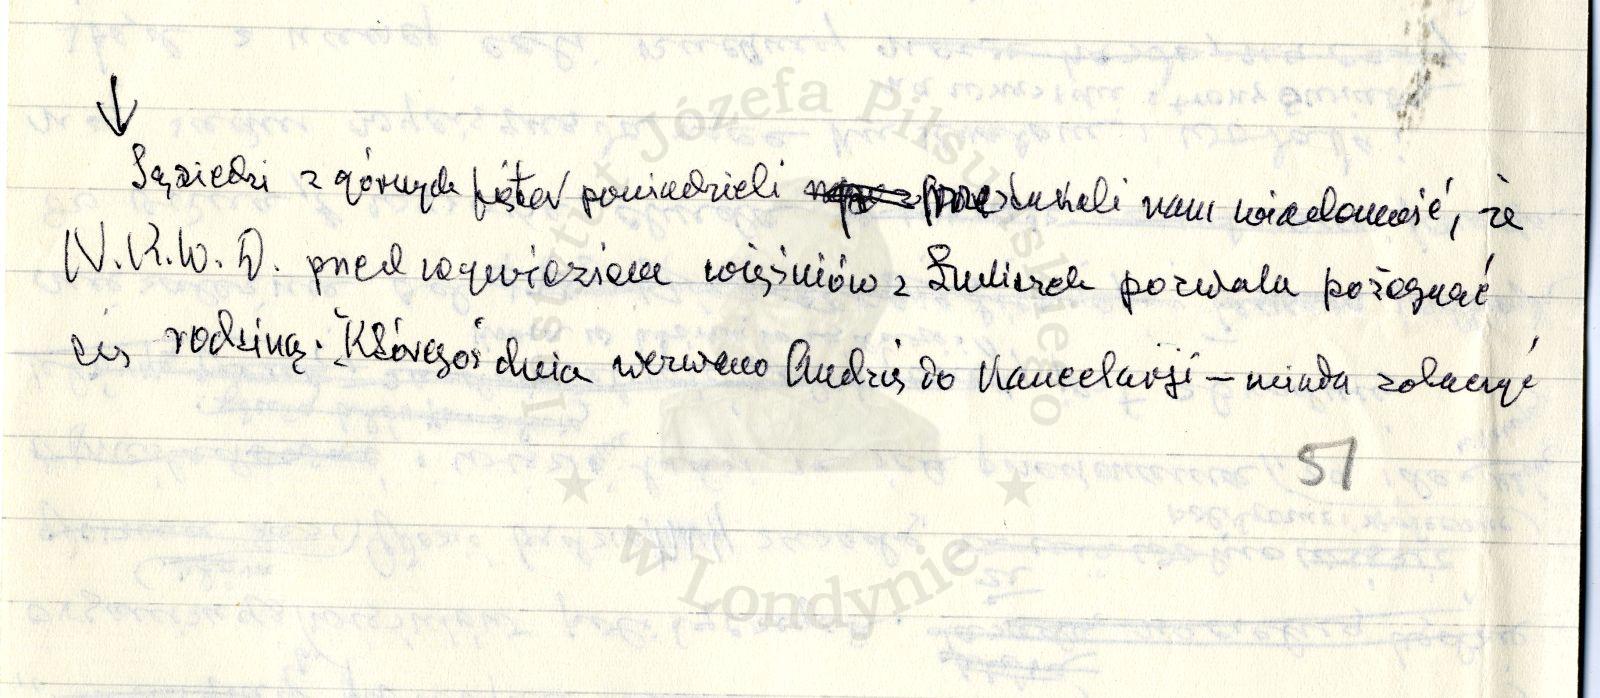 ↓
Sąsiedzi z górnych pięter powiedzieli przestukali nam wiadomość, że
N.K.W.D. przed wywiezieniem więźniów z Zamarst. pozwala pożegnać
się rodziną. Któregoś dnia wezwano Andzię do Kancelarji – miała zobaczyć
51
Instytut Józefa Piłsudskiego
w Londynie